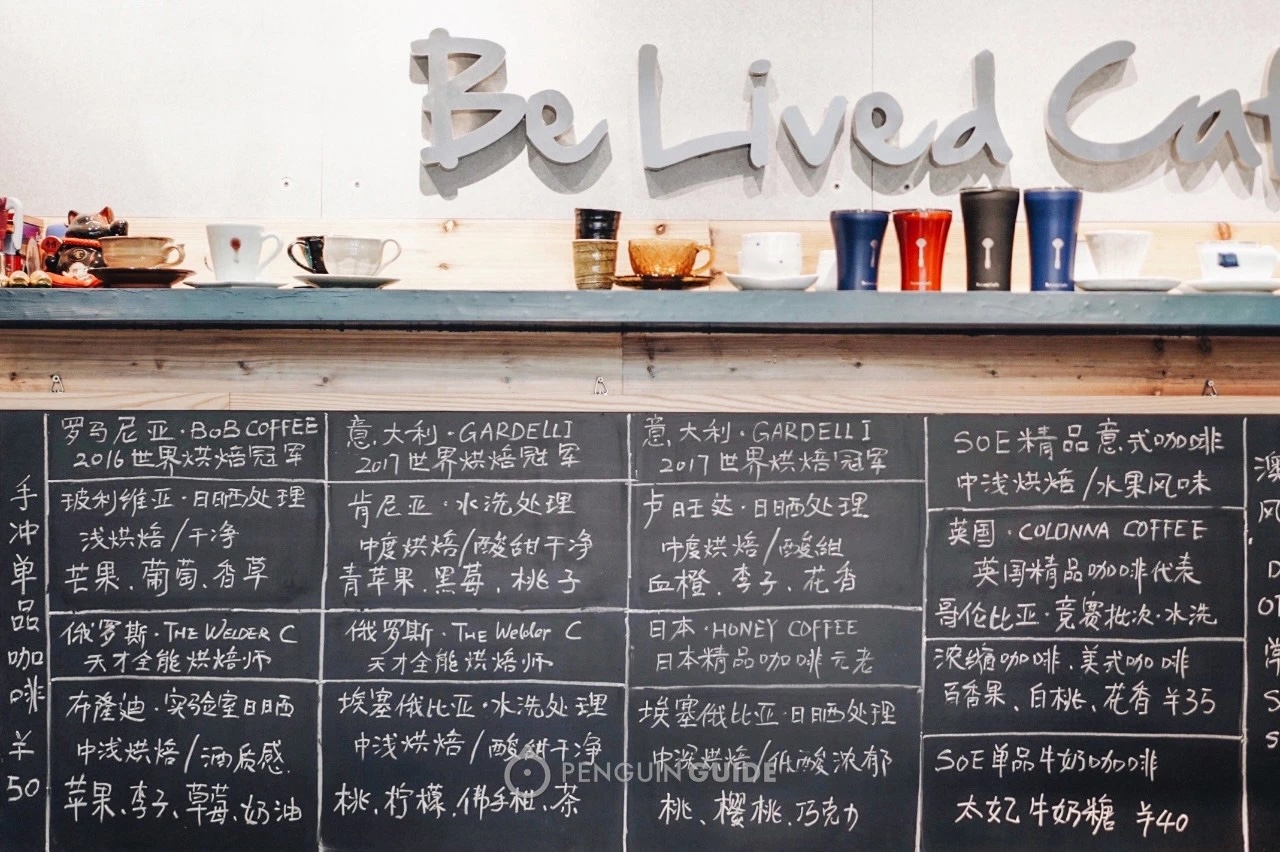 Be Lived Caf
手冲单品咖啡¥50
罗马尼亚·BOB COFFEE
2016世界烘焙冠军
玻利维亚·日晒处理
浅烘焙/干净
芒果、葡萄、香草
俄罗斯·THE WELDER C
天才全能烘焙师
布隆迪·实验室日晒
中浅烘焙/酒质感
苹果、李子、草莓、奶油
意大利·GARDELLI
2017世界烘焙冠军
肯尼亚·水洗处理
中度烘焙/酸甜干净
青苹果、黑莓、桃子
俄罗斯·THE Welder C
天才全能烘焙师
埃塞俄比亚·水洗处理
中浅烘焙/酸甜干净
桃、柠檬、佛手柑、茶
意大利·GARDELLI
2017世界烘焙冠军
卢旺达·日晒处理
中度烘焙/酸甜
血橙、李子、花香
日本·HONEY COFFEE
日本精品咖啡元老
埃塞俄比亚·日晒处理
中深烘焙/低酸浓郁
桃、樱桃、巧克力
SOE精品意式咖啡
中浅烘焙/水果风味
英国·COLONNA COFFEE
英国精品咖啡代表
哥伦比亚·竞赛批次·水洗
浓缩咖啡、美式咖啡
百香果、白桃、花香 ¥35
SOE单品牛奶咖啡
太妃牛奶糖 ¥40
澳
风
PENGUIN GUIDE